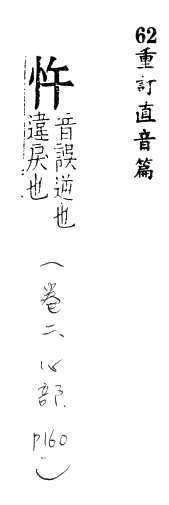 62重訂直音篇
忤
音誤逆也
違戾也
(卷二、心部 p160)